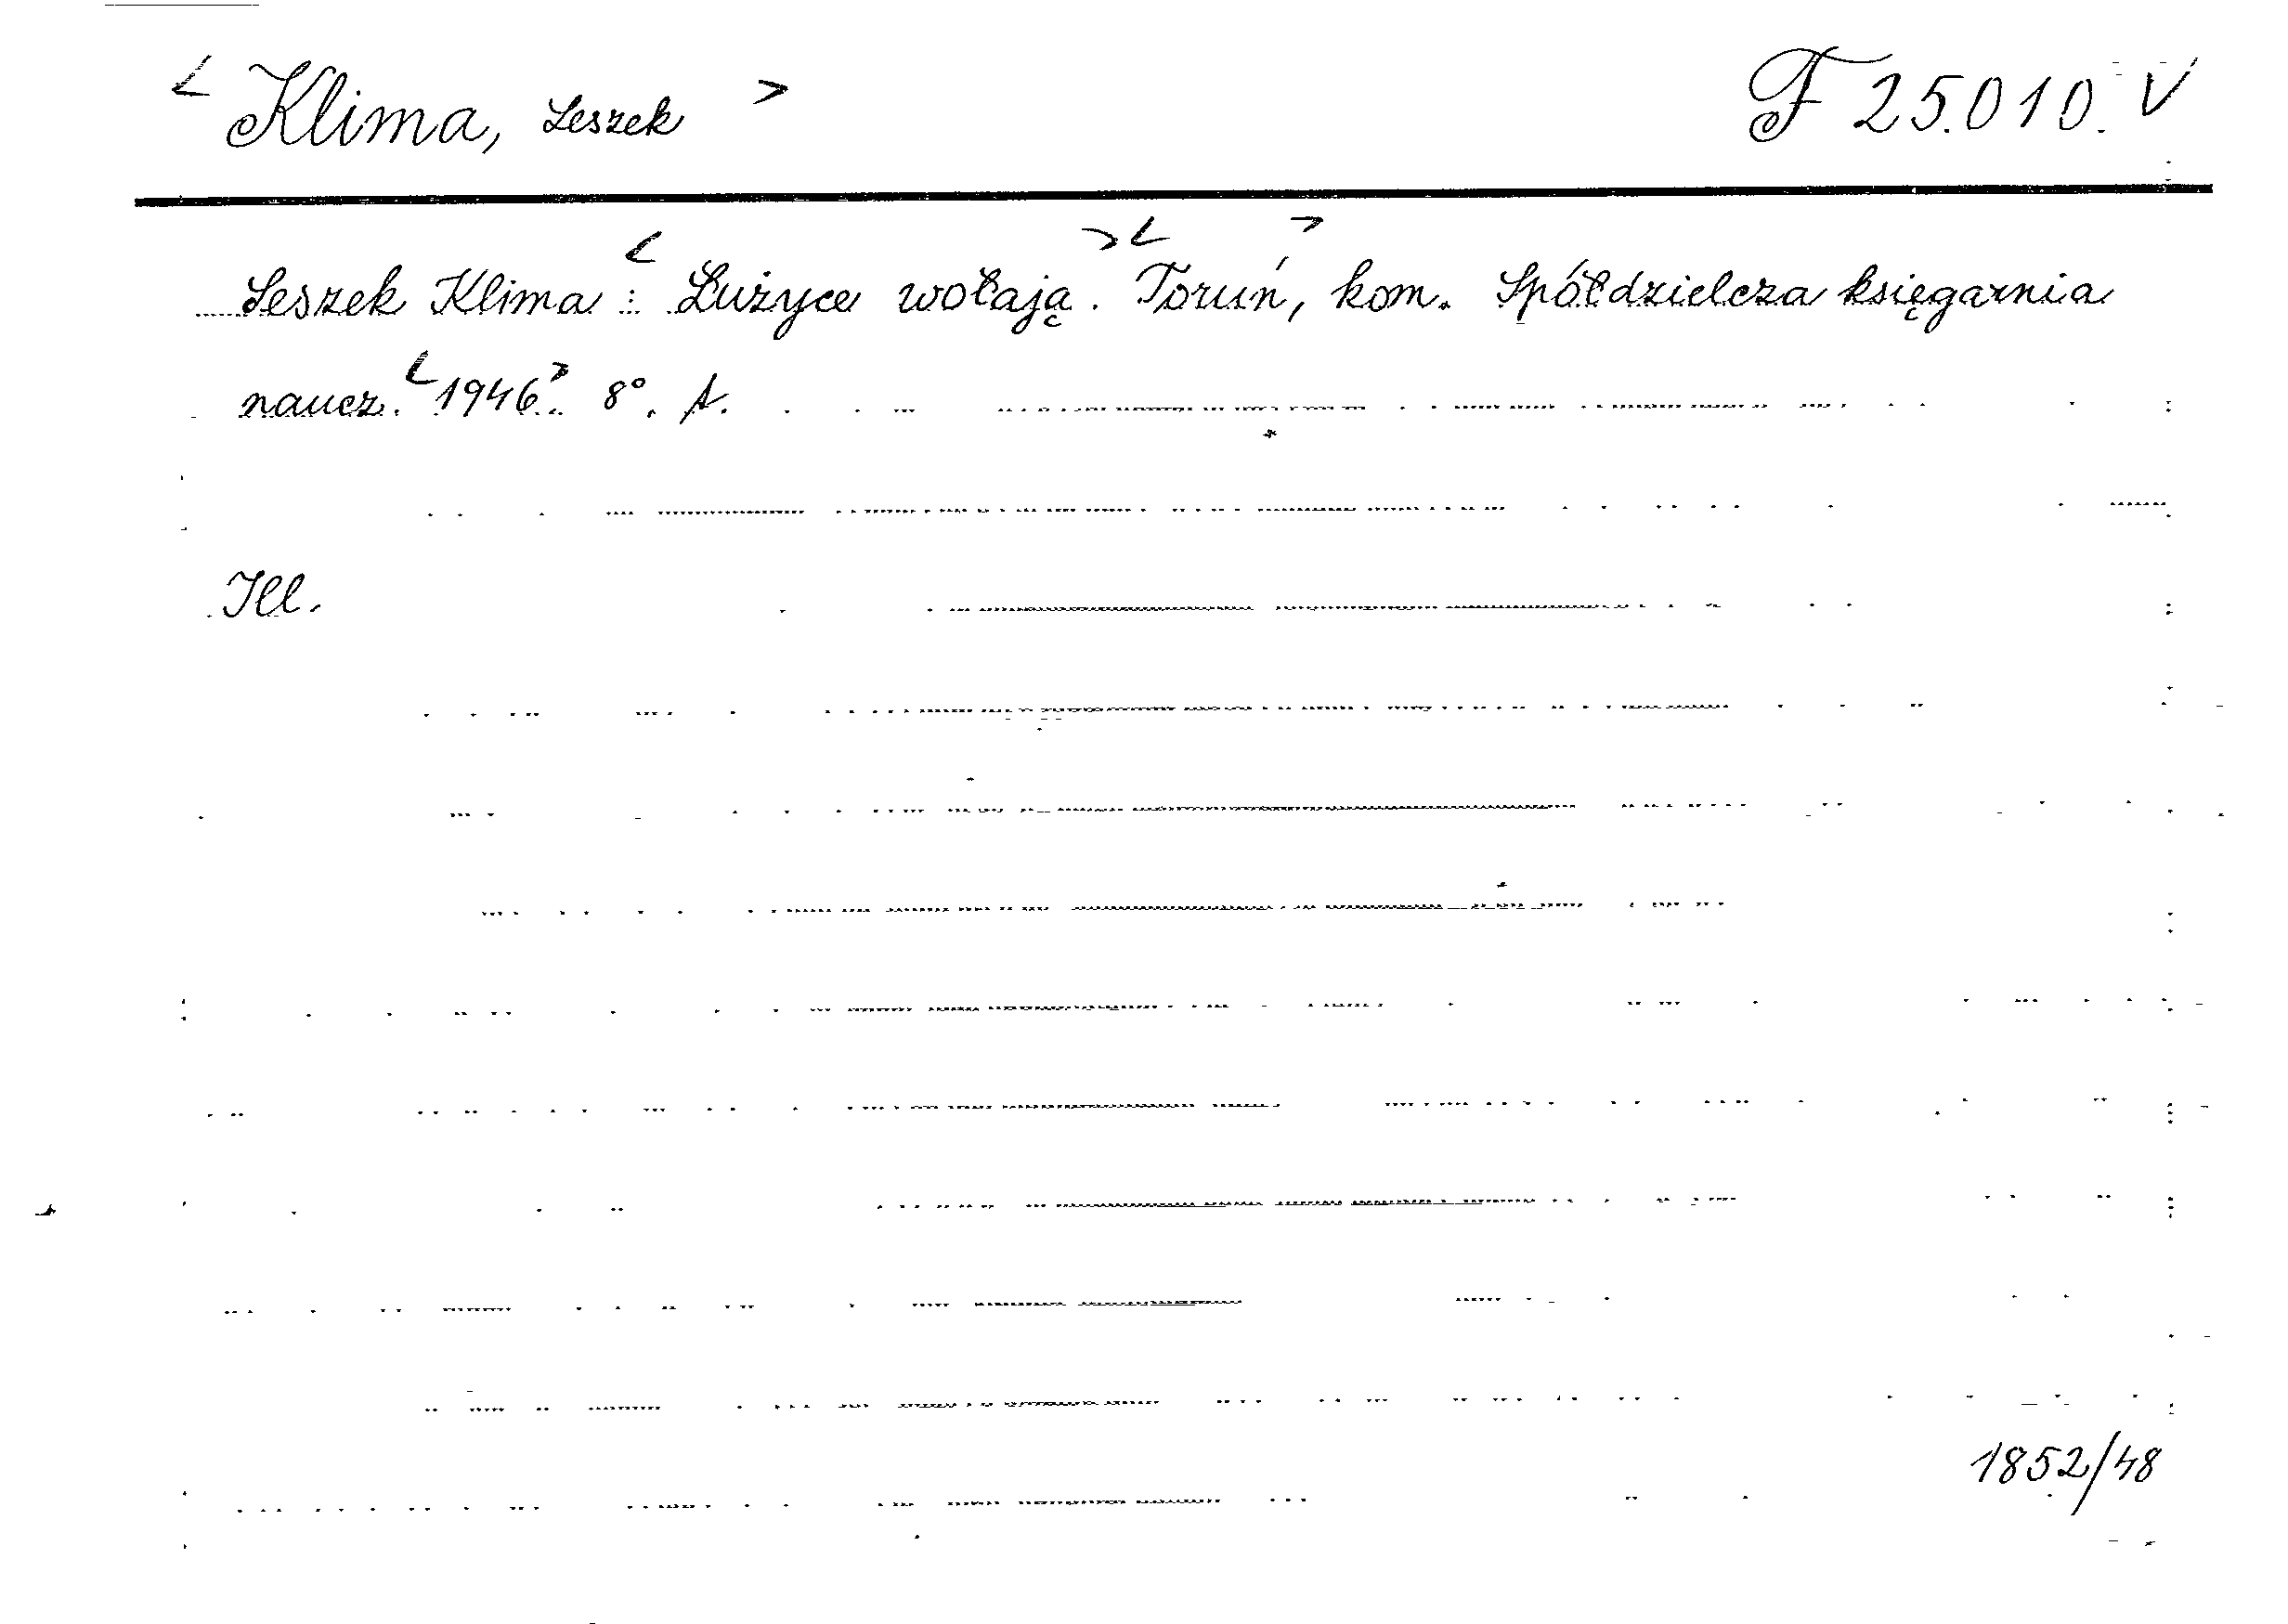 < Klima, Leszek > F 25.010. V
Leszek Klima : < Łużyce wołają . > < Toruń, > kom. Spółdzielcza księgarnia
naucz. < 1946 > . 8°.
Ill.
1852/48